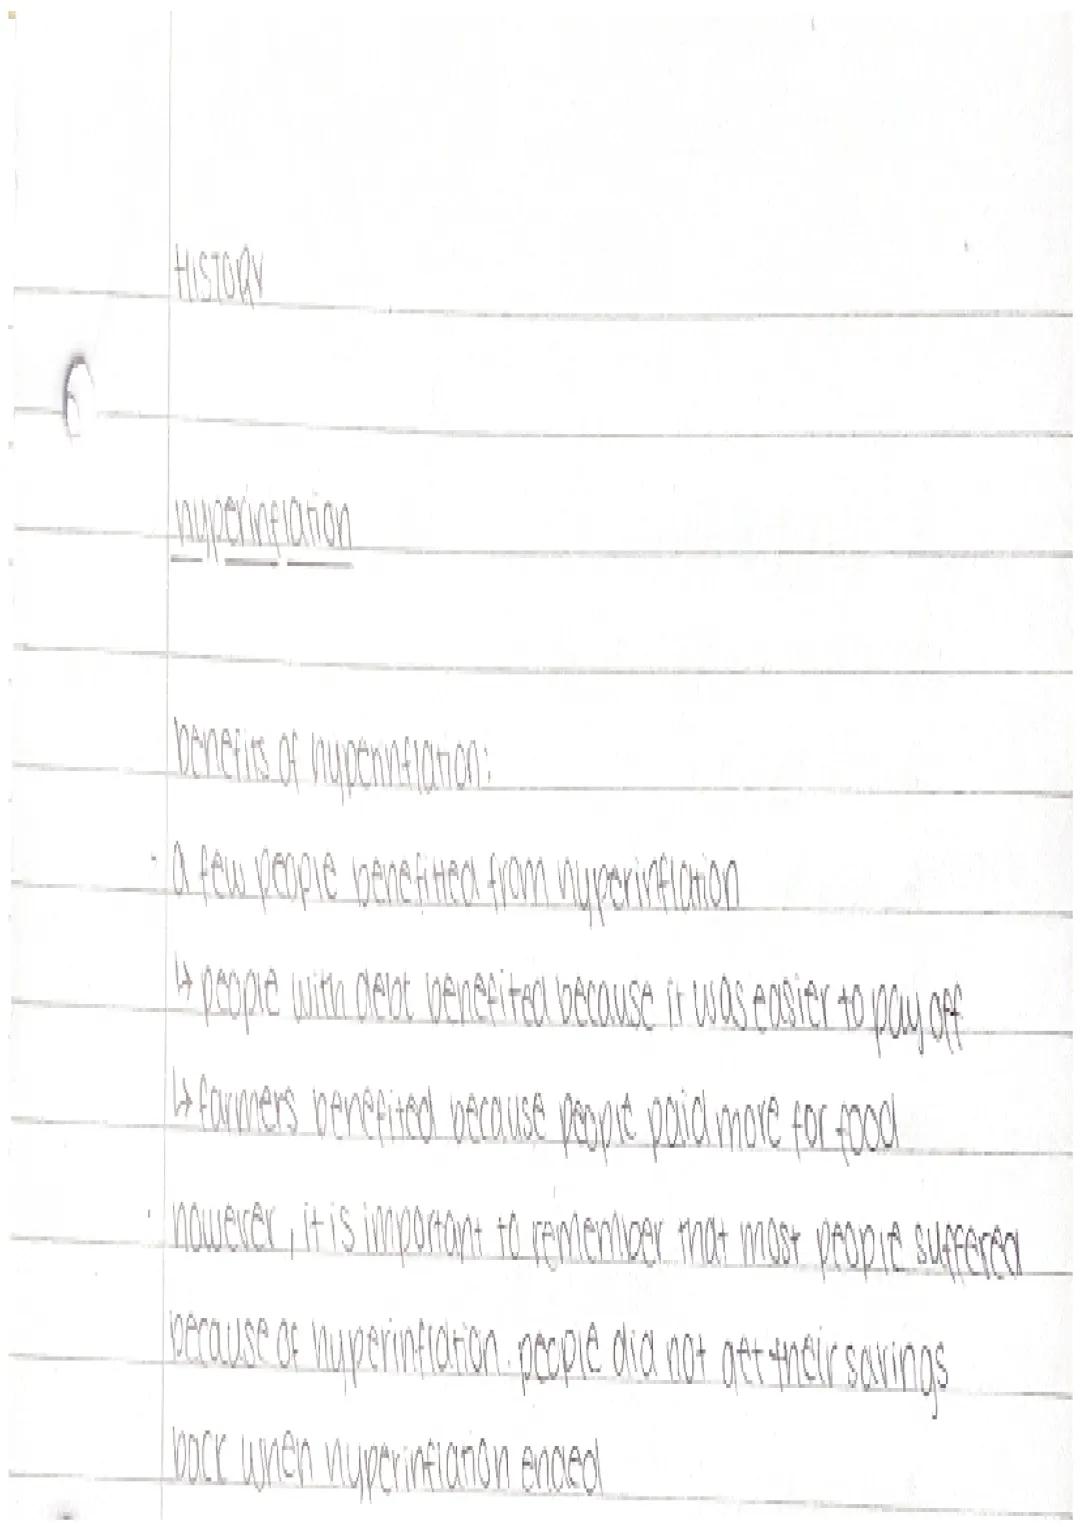 HISTORY
hyperinflation
benefits of hyperinflation:
· a few people benefitted from hyperinflation
↳ people with debt benefited because it was easier to pay off
↳ farmers benefited because people paid more for food
· however, it is important to remember that most people suffered
because of hyperinflation. people did not get their savings
back when hyperinflation ended